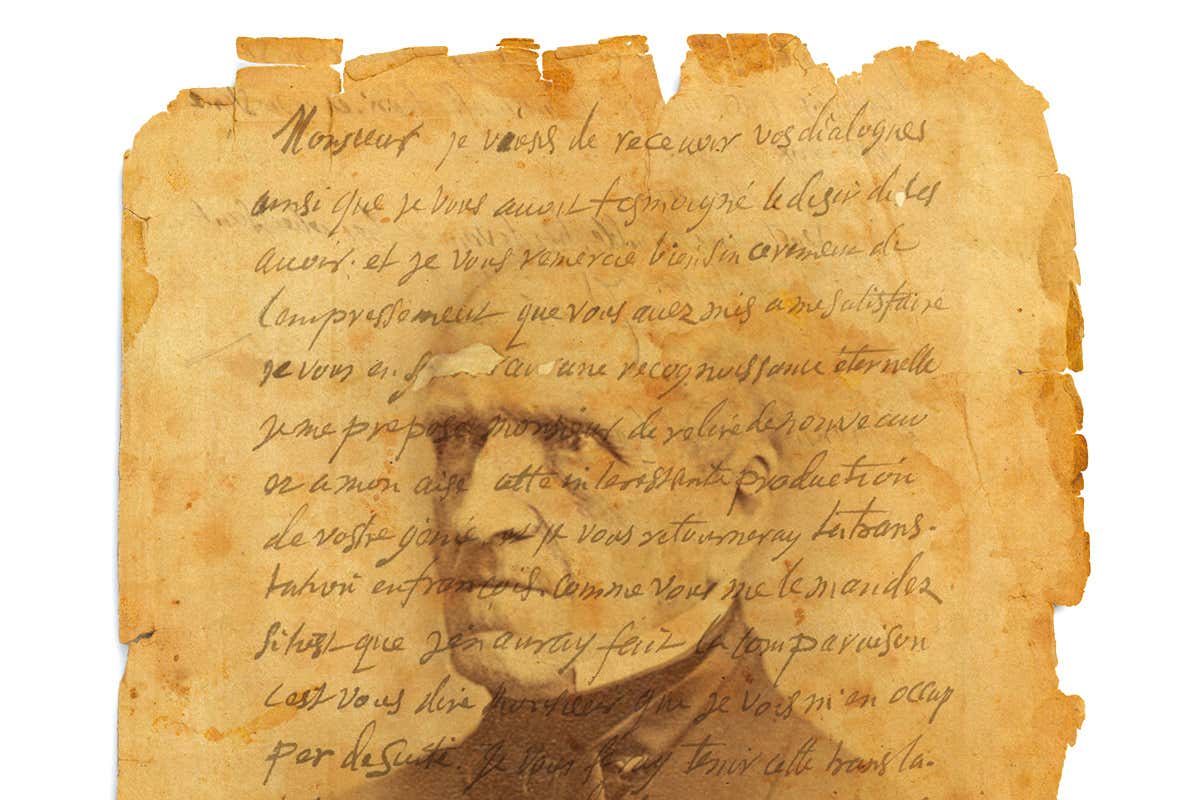 Monsieur je viens de recevoir vos dialogues
ainsi que je vous avoit tesmoigné le desir de les
avoir. et je vous remercie bien sincerement de
lempressement que vous avez mis a me satisfaire
je vous en aurai une recognoissance éternelle
je me propose monsieur de relire de nouveau
et a mon aise cette interéstante production
de vostre génie et je vous retourneray la trans-
lation en françois. comme vous me le mandez
sitost que jen auray fait la comparaison
cest vous dire monsieur que je vais m'en occup
per de suite. Je vous feray tenir cette transla-